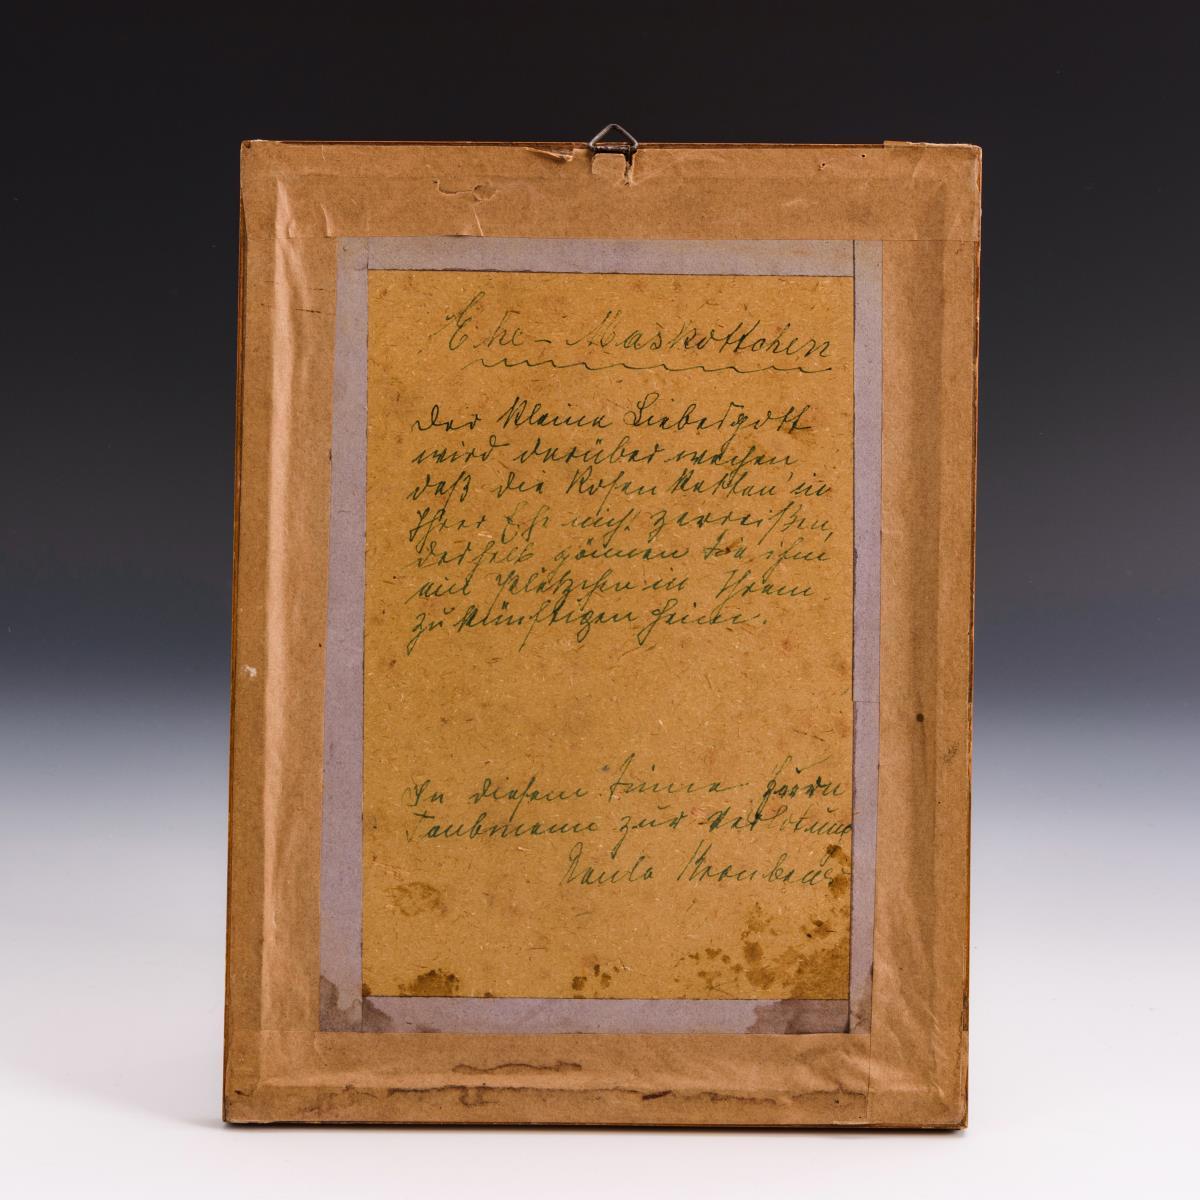 Ehe-Maskottchen
Der kleine Liebesgott
wird darüber wachen
daß die Rosenketten in
Ihrer Ehe nicht zerreißen,
deshalb gönnen Sie ihm
ein Plätzchen in Ihrem
zukünftigen Heim.
In diesem Sinne Herrn
Taubmann zur Verlobung
Paula